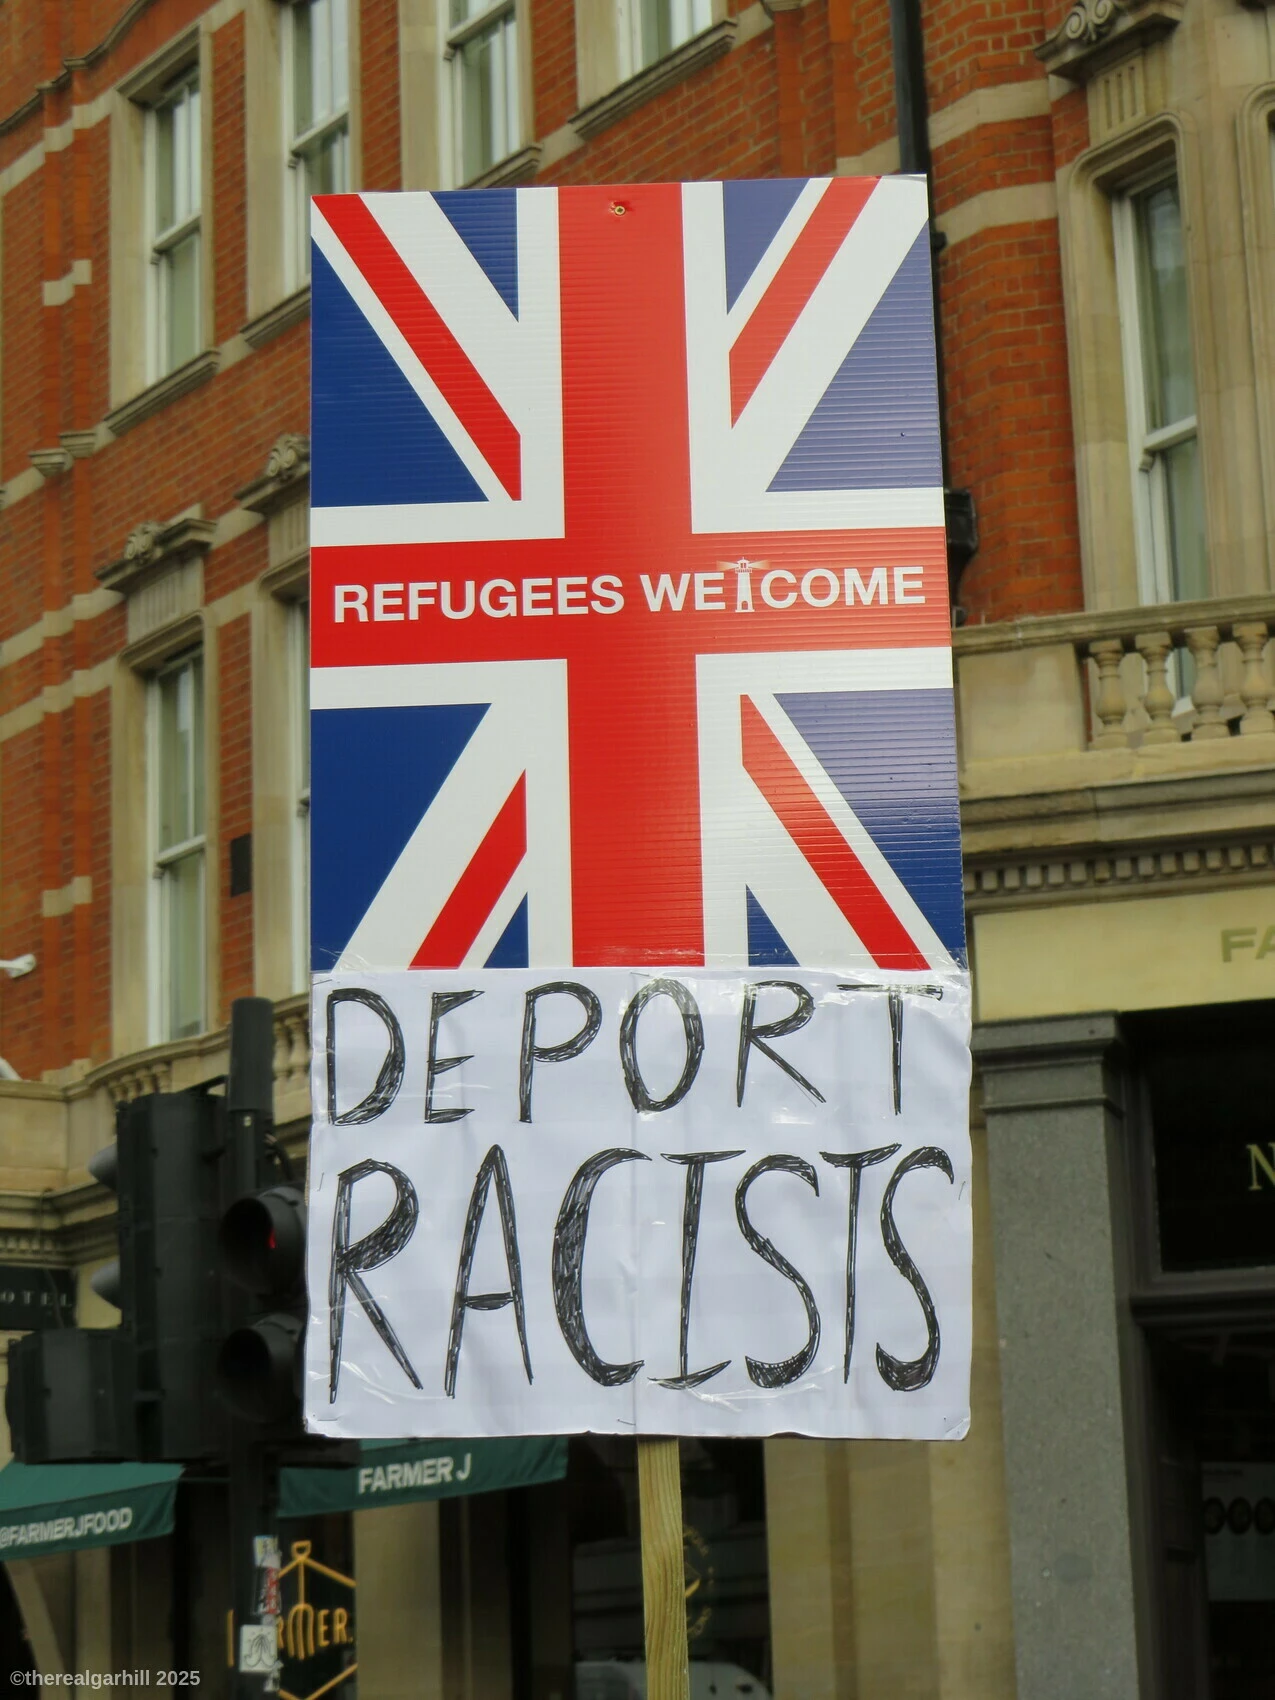 REFUGEES WELCOME
DEPORT
RACISTS
FA
N
OTEL
FARMER J
@FARMERJFOOD
FARMER.
©therealgarhill 2025